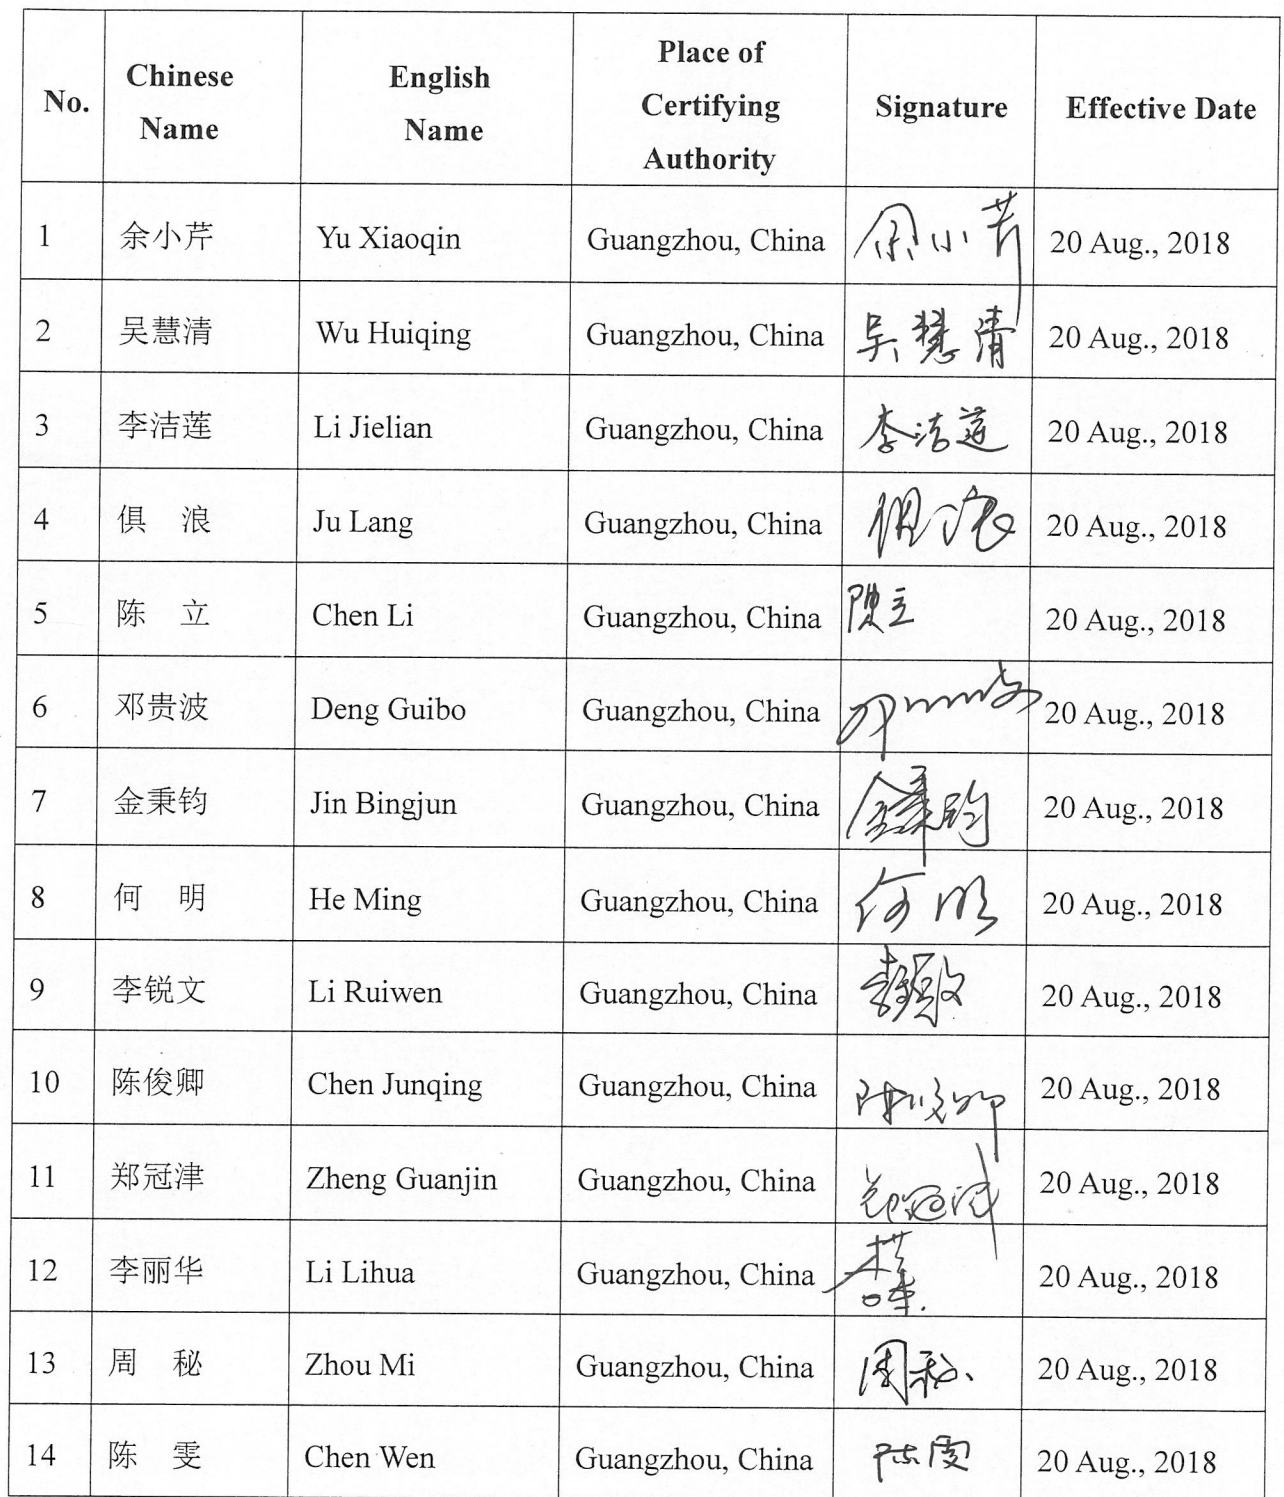 No. Chinese Name English Name Place of Certifying Authority Signature Effective Date
1 余小芹 Yu Xiaoqin Guangzhou, China 余小芹 20 Aug., 2018
2 吴慧清 Wu Huiqing Guangzhou, China 吴慧清 20 Aug., 2018
3 李洁莲 Li Jielian Guangzhou, China 李洁莲 20 Aug., 2018
4 俱 浪 Ju Lang Guangzhou, China 俱浪 20 Aug., 2018
5 陈 立 Chen Li Guangzhou, China 陳立 20 Aug., 2018
6 邓贵波 Deng Guibo Guangzhou, China 20 Aug., 2018
7 金秉钧 Jin Bingjun Guangzhou, China 金秉钧 20 Aug., 2018
8 何 明 He Ming Guangzhou, China 何明 20 Aug., 2018
9 李锐文 Li Ruiwen Guangzhou, China 20 Aug., 2018
10 陈俊卿 Chen Junqing Guangzhou, China 陈俊卿 20 Aug., 2018
11 郑冠津 Zheng Guanjin Guangzhou, China 郑冠津 20 Aug., 2018
12 李丽华 Li Lihua Guangzhou, China 20 Aug., 2018
13 周 秘 Zhou Mi Guangzhou, China 周秘 20 Aug., 2018
14 陈 雯 Chen Wen Guangzhou, China 陈雯 20 Aug., 2018